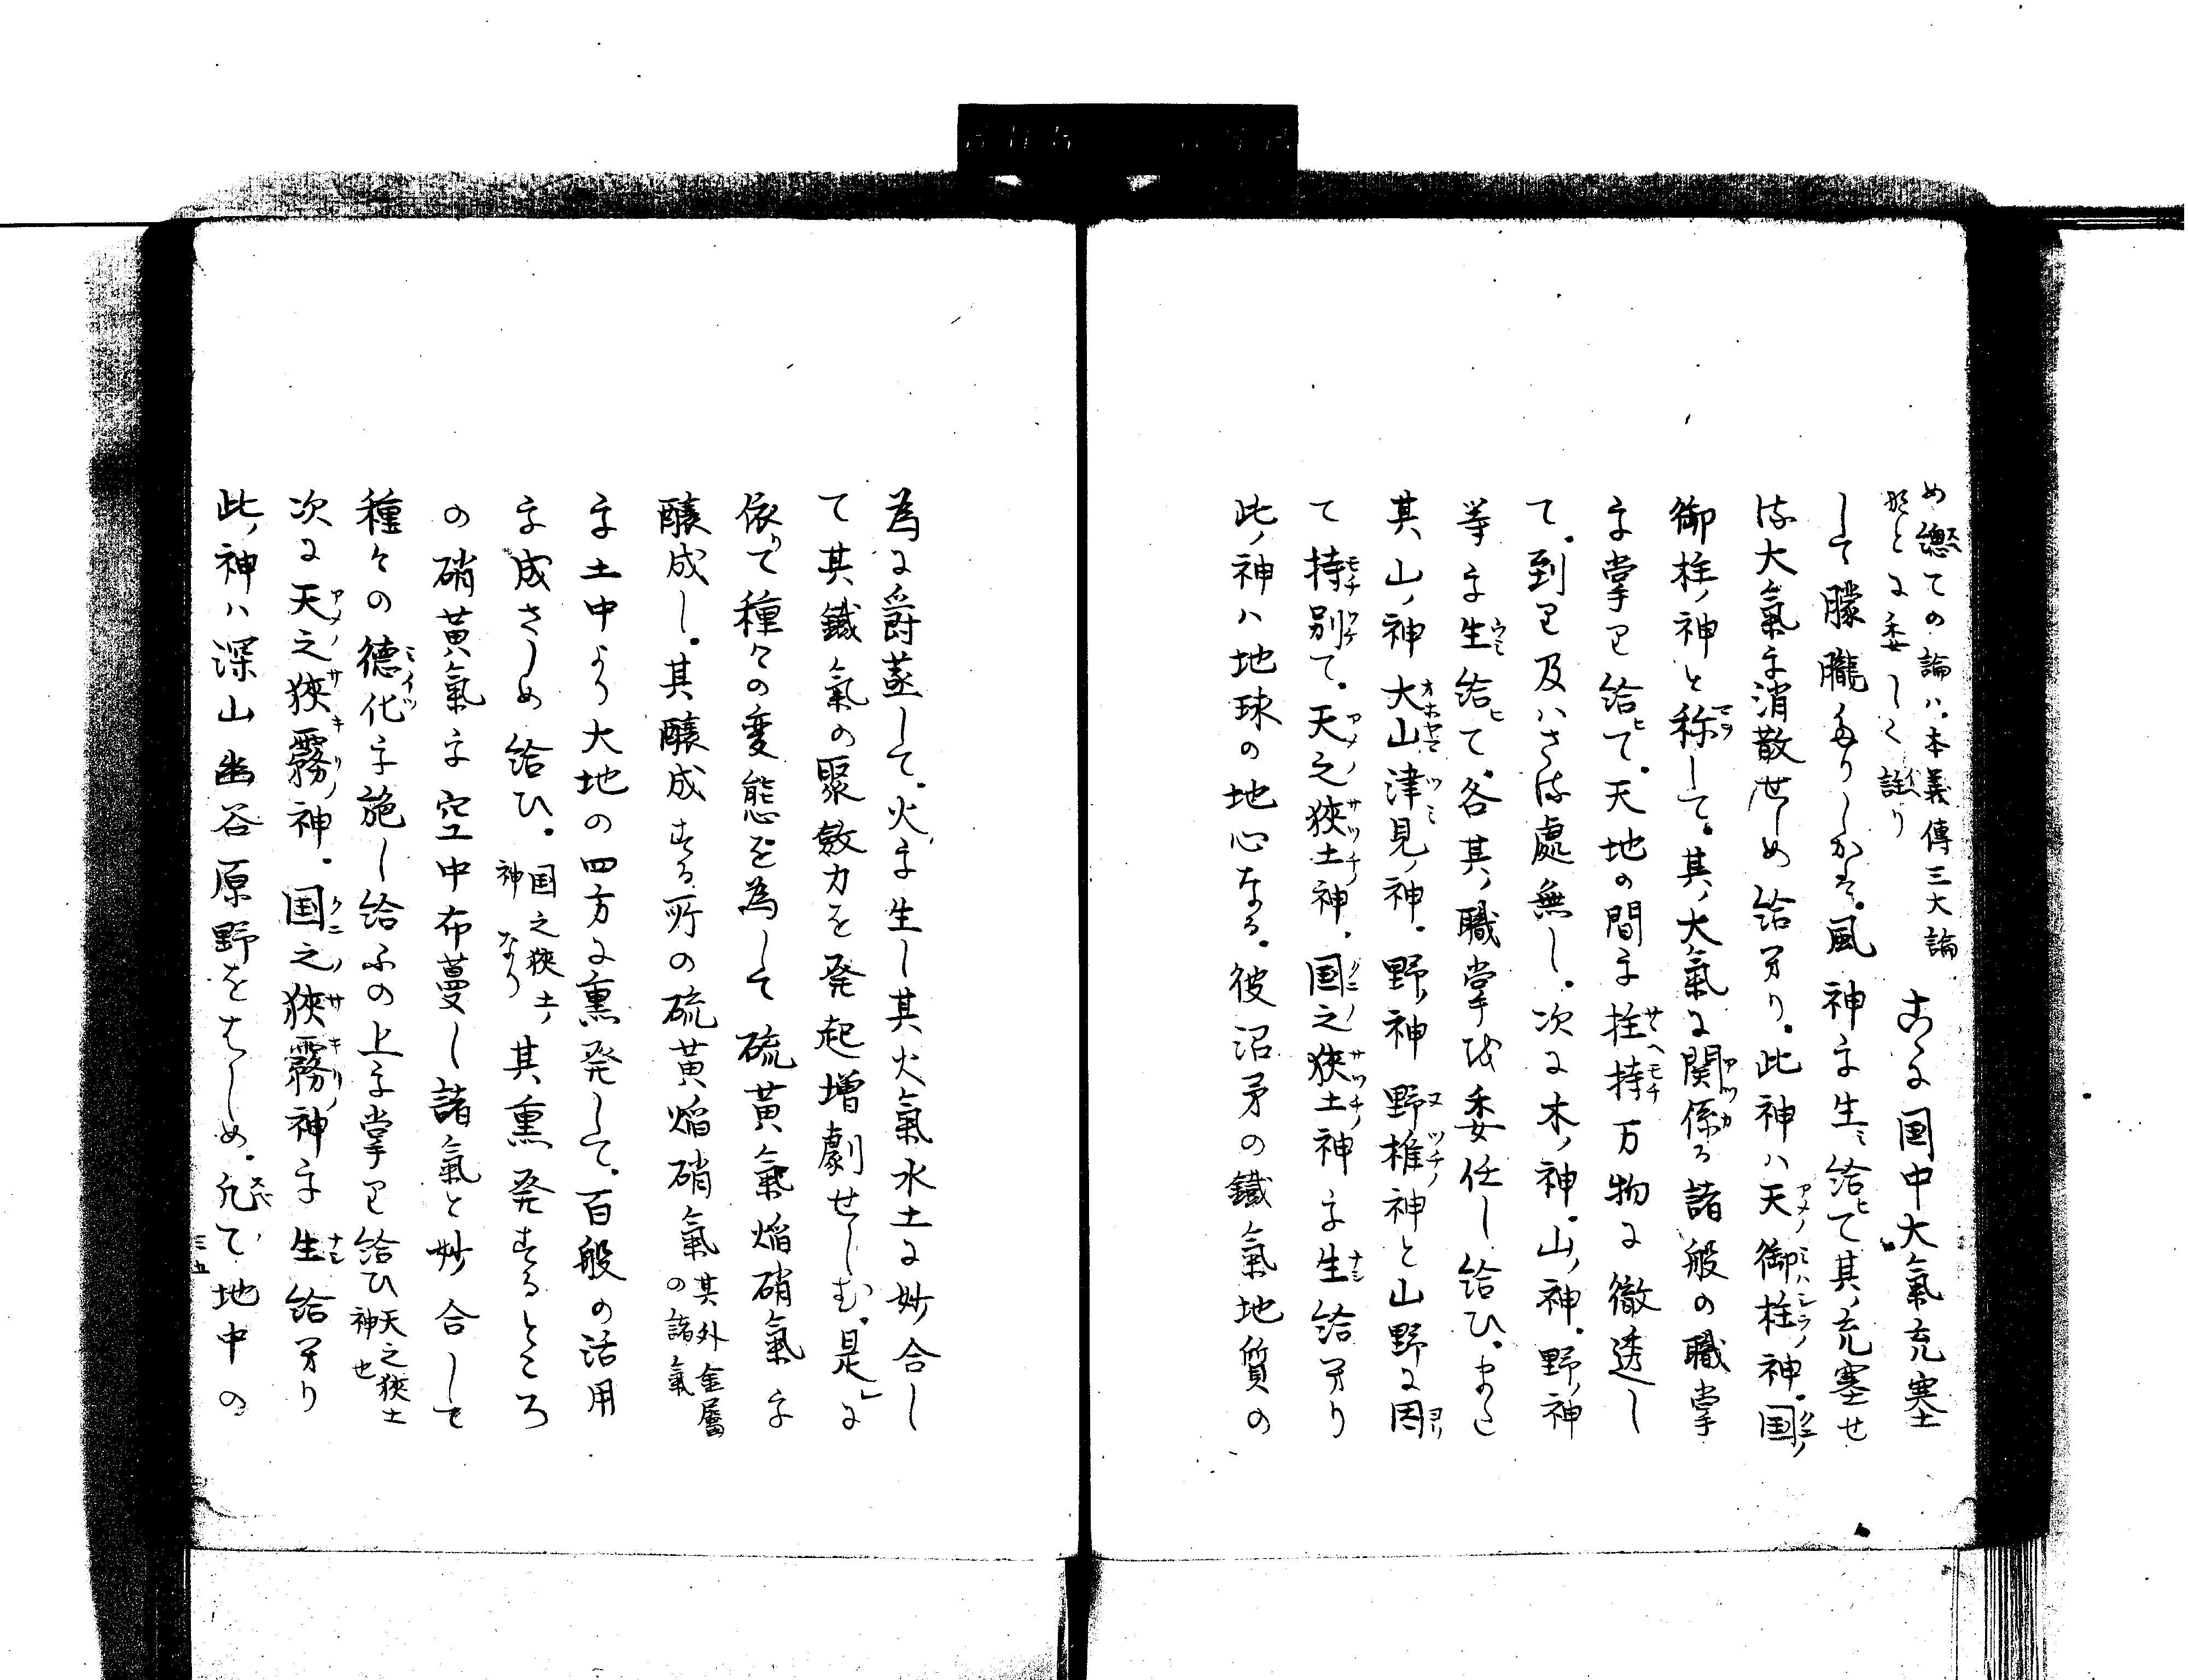 め總ての論ハ、本義傳三大論
形とに委しく註り
こゝに国中大氣充塞
して朦朧たりしかは、風神を生ミ給ひて其ノ充塞せ
る大氣を消散せしめ給ひたり、此神ハ天ノ御柱ノ神、国ノ
御柱ノ神と称して、其ノ大氣に関係る諸般の職掌
を掌り給ひて、天地の間を拄持万物に徹透し
て、到り及ハさる處無し、次に木ノ神、山ノ神、野ノ神
等を生給ひて、各其ノ職掌を委任し給ひ、また
其山ノ神大山津見ノ神、野ノ神野椎神と山野に因
て持別て、天之狹土神、国之狹土神を生給ひたり
此ノ神ハ地球の地心なる、彼沼矛の鐵氣地質の
為に爵蒸して、火を生し其火氣水土に妙合し
て其鐵氣の聚散力を発起増劇せしむ、是に
依て種々の変態を為して硫黄氣焔硝氣を
醸成し、其醸成する所の硫黄焔硝氣
其外金属
の諸氣
を土中より大地の四方に熏発して、百般の活用
を成さしめ給ひ、
国之狹土ノ
神なり
其熏発するところ
の硝黄氣を空中布蔓し諸氣と妙合して
種々の徳化を施し給ふの上を掌り給ひ
天之狹土
神也
次に天之狹霧ノ神、国之狹霧ノ神を生給ひたり
此ノ神ハ深山幽谷原野をはしめ、凡て地中の